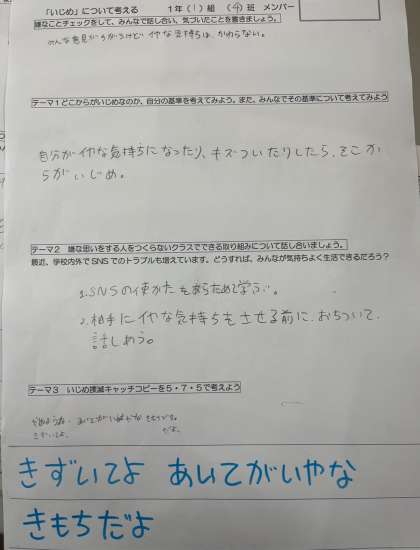 「いじめ」について考える 1年(1)組 (4)班 メンバー
嫌なことチェックをして、みんなで話し合い、気づいたことを書きましょう。
みんな意見がちがうけどイヤな気持ちは、かわらない。
テーマ1どこからがいじめなのか、自分の基準を考えてみよう。また、みんなでその基準について考えてみよう
自分がイヤな気持ちになったり、キズついたりしたら、そこか
らがいじめ。
テーマ2 嫌な思いをする人をつくらないクラスでできる取り組みについて話し合いましょう。
最近、学校内外でSNSでのトラブルも増えています。どうすれば、みんなが気持ちよく生活できるだろう?
1.SNSの使かたをあらためて学ぶ。
2.相手にイヤな気持ちをさせる前に、おちついて、
話しあう。
テーマ3 いじめ撲滅キャッチコピーを5・7・5で考えよう
きずいてよ あいてがいやな
きもちだよ